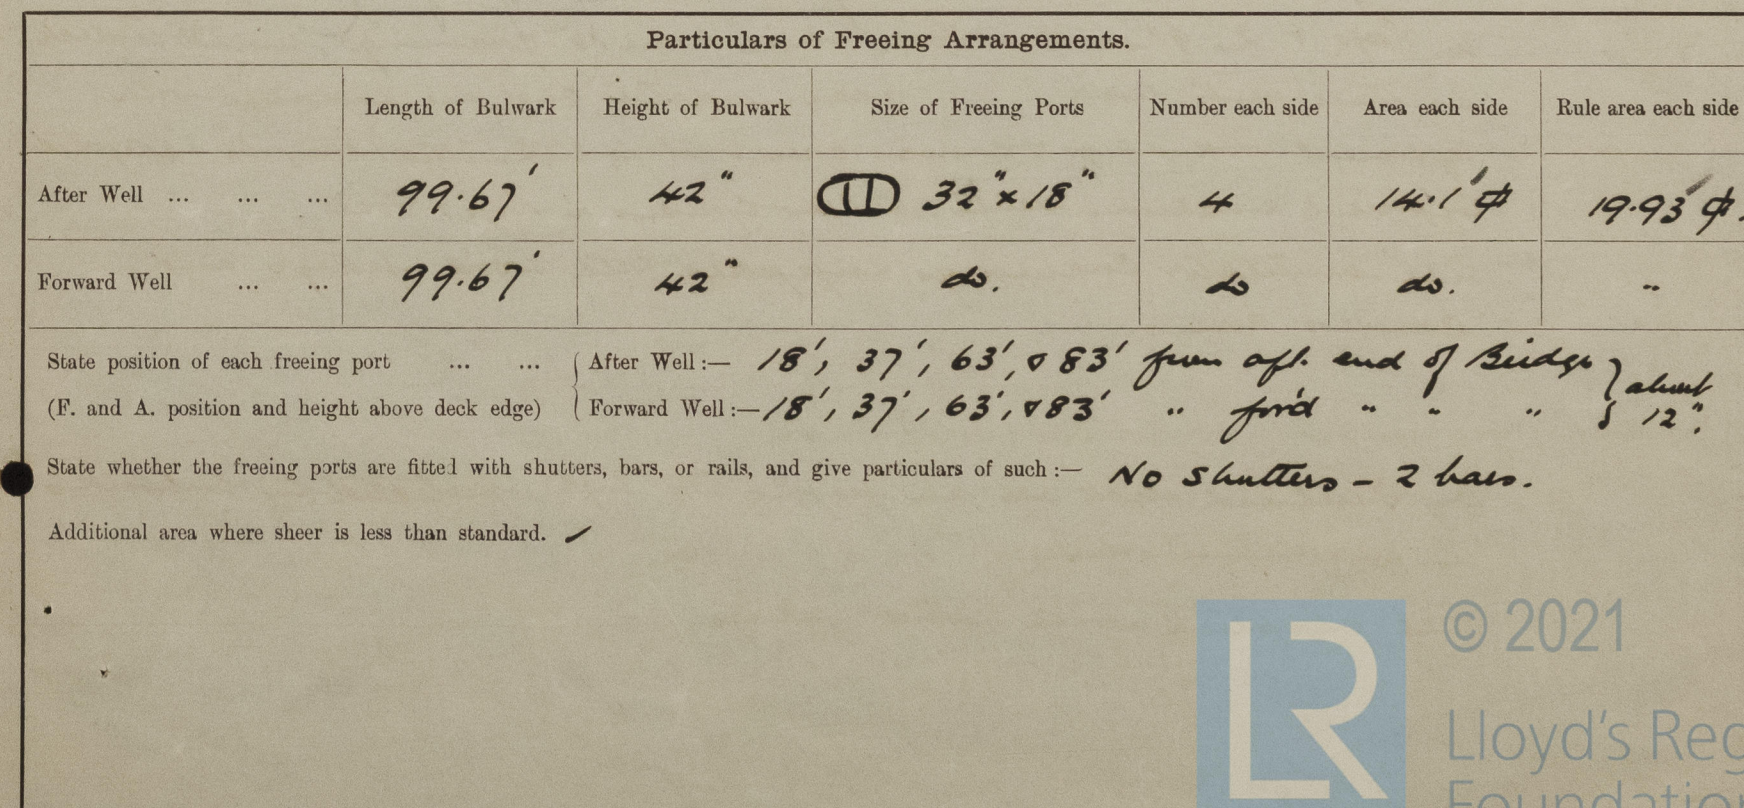 Particulars of Freeing Arrangements.
Length of Bulwark Height of Bulwark Size of Freeing Ports Number each side Area each side Rule area each side
After Well ... ... ... 99.67' 42" 32" x 18" 4 14.1' ⌀ 19.93' ⌀.
Forward Well ... ... 99.67' 42" do. do do. "
State position of each freeing port ... ... After Well :— 18', 37', 63', & 83' from aft. end of Bridge } about
(F. and A. position and height above deck edge) Forward Well :— 18', 37', 63', & 83' " for'd " " " } 12".
State whether the freeing ports are fitted with shutters, bars, or rails, and give particulars of such :— No shutters – 2 bars.
Additional area where sheer is less than standard. ✓
LR
© 2021
Lloyd's Reg
Foundation